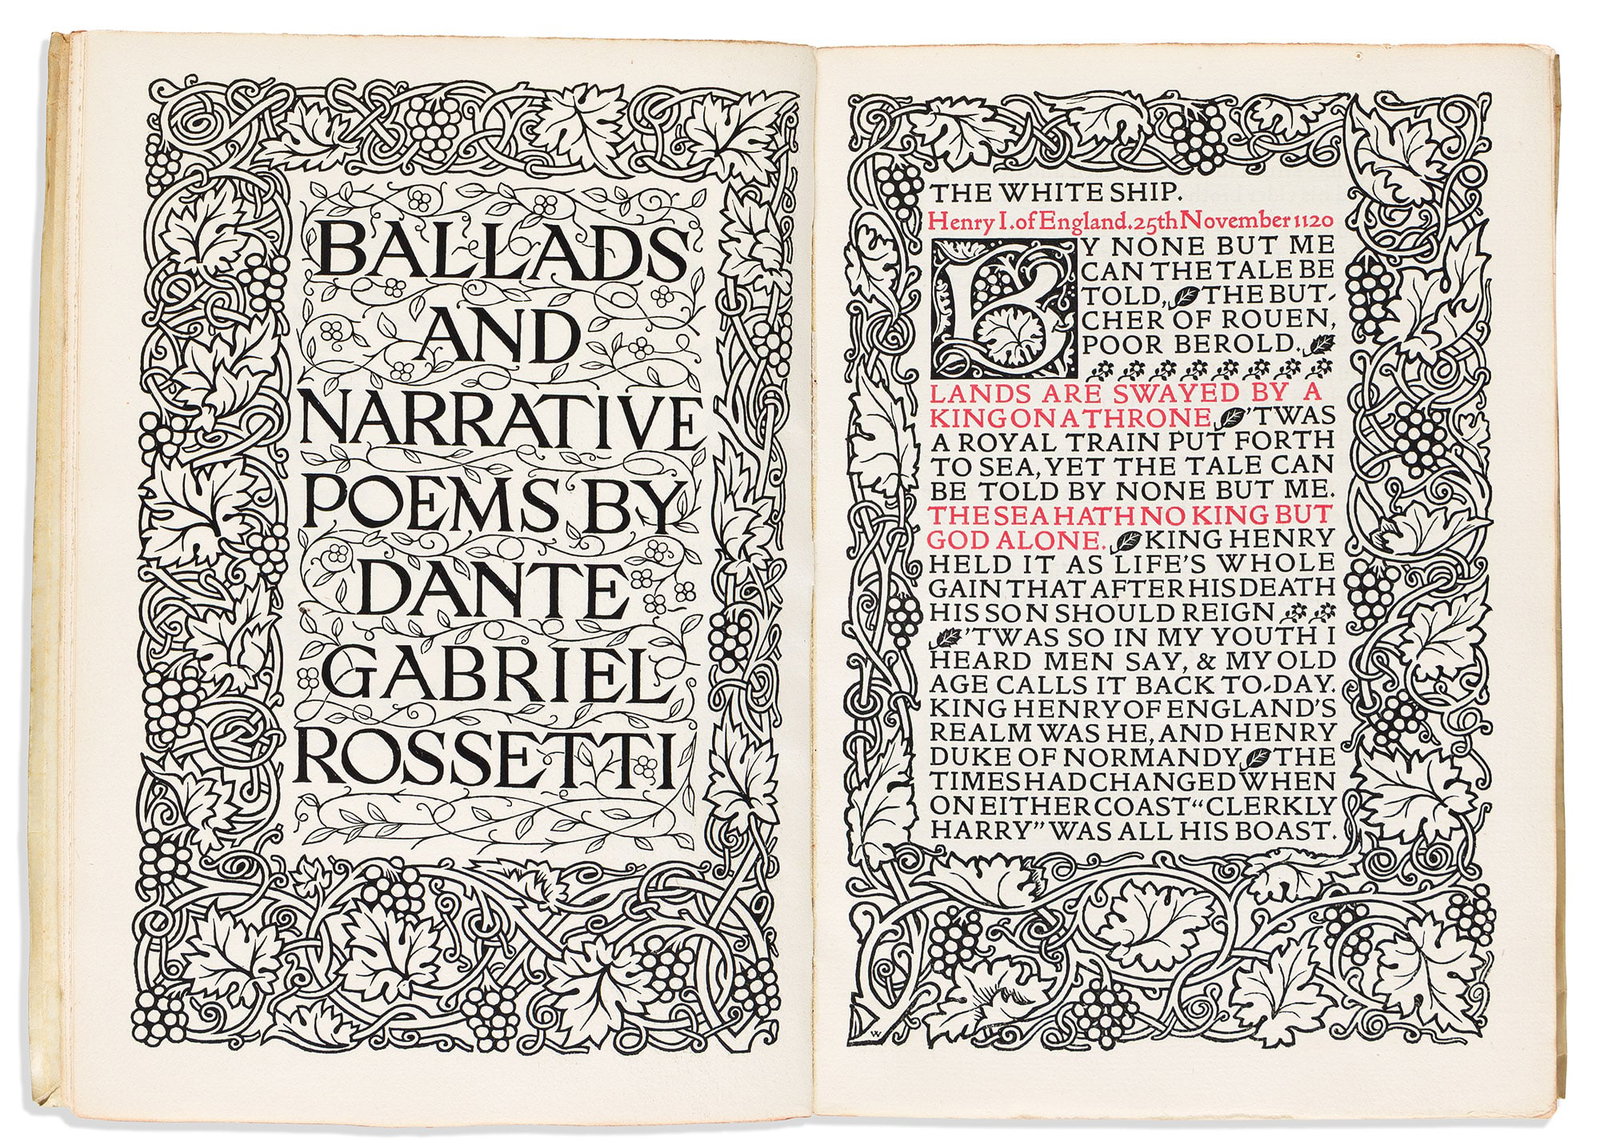 BALLADS
AND
NARRATIVE
POEMS BY
DANTE
GABRIEL
ROSSETTI
THE WHITE SHIP.
Henry I. of England. 25th November 1120
BY NONE BUT ME
CAN THE TALE BE
TOLD, THE BUT-
CHER OF ROUEN,
POOR BEROLD.
LANDS ARE SWAYED BY A
KING ON A THRONE 'TWAS
A ROYAL TRAIN PUT FORTH
TO SEA, YET THE TALE CAN
BE TOLD BY NONE BUT ME.
THE SEA HATH NO KING BUT
GOD ALONE. KING HENRY
HELD IT AS LIFE'S WHOLE
GAIN THAT AFTER HIS DEATH
HIS SON SHOULD REIGN
'TWAS SO IN MY YOUTH I
HEARD MEN SAY, & MY OLD
AGE CALLS IT BACK TO-DAY.
KING HENRY OF ENGLAND'S
REALM WAS HE, AND HENRY
DUKE OF NORMANDY THE
TIMES HAD CHANGED WHEN
ON EITHER COAST "CLERKLY
HARRY" WAS ALL HIS BOAST.
W